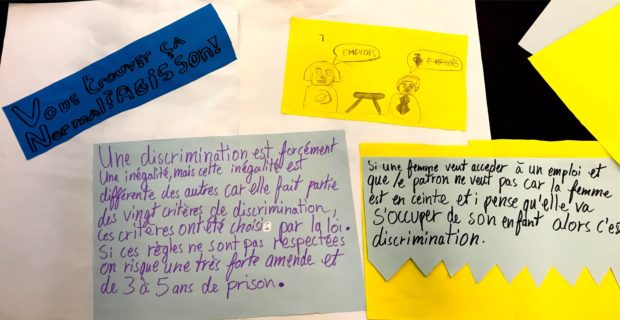 Vous trouver ça
Normal? AGISSON!
1
EMPLOIS
EMPLOIS
Une discrimination est forcément
Une inégalité, mais cette inégalité est
différente des autres car elle fait partie
des vingt critères de discrimination,
ces critères ont été choisi par la loi.
Si ces règles ne sont pas respectées
on risque une très forte amende et
de 3 à 5 ans de prison.
Si une femme veut acceder à un emploi et
que le patron ne veut pas car la femme
est en ceinte et i pense qu'elle va
S'occuper de son enfant alors c'es
discrimination.